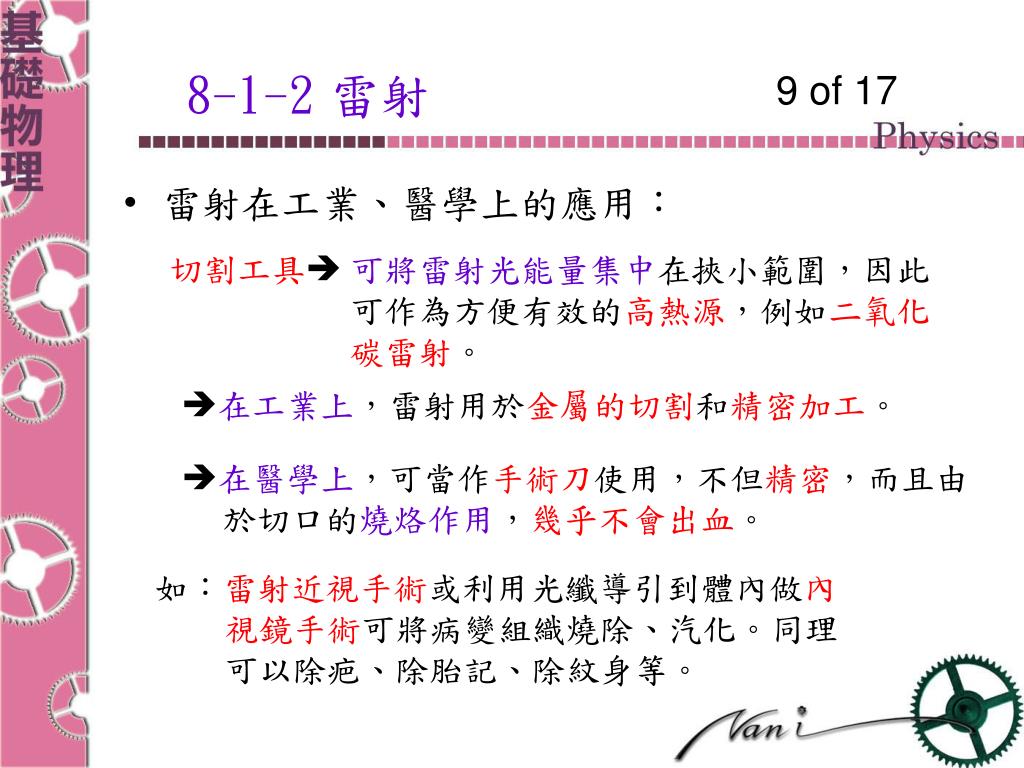 基礎物理
8-1-2 雷射
9 of 17
Physics
• 雷射在工業、醫學上的應用：
切割工具➔ 可將雷射光能量集中在挾小範圍，因此
可作為方便有效的高熱源，例如二氧化
碳雷射。
➔在工業上，雷射用於金屬的切割和精密加工。
➔在醫學上，可當作手術刀使用，不但精密，而且由
於切口的燒烙作用，幾乎不會出血。
如：雷射近視手術或利用光纖導引到體內做內
視鏡手術可將病變組織燒除、汽化。同理
可以除疤、除胎記、除紋身等。
Nani